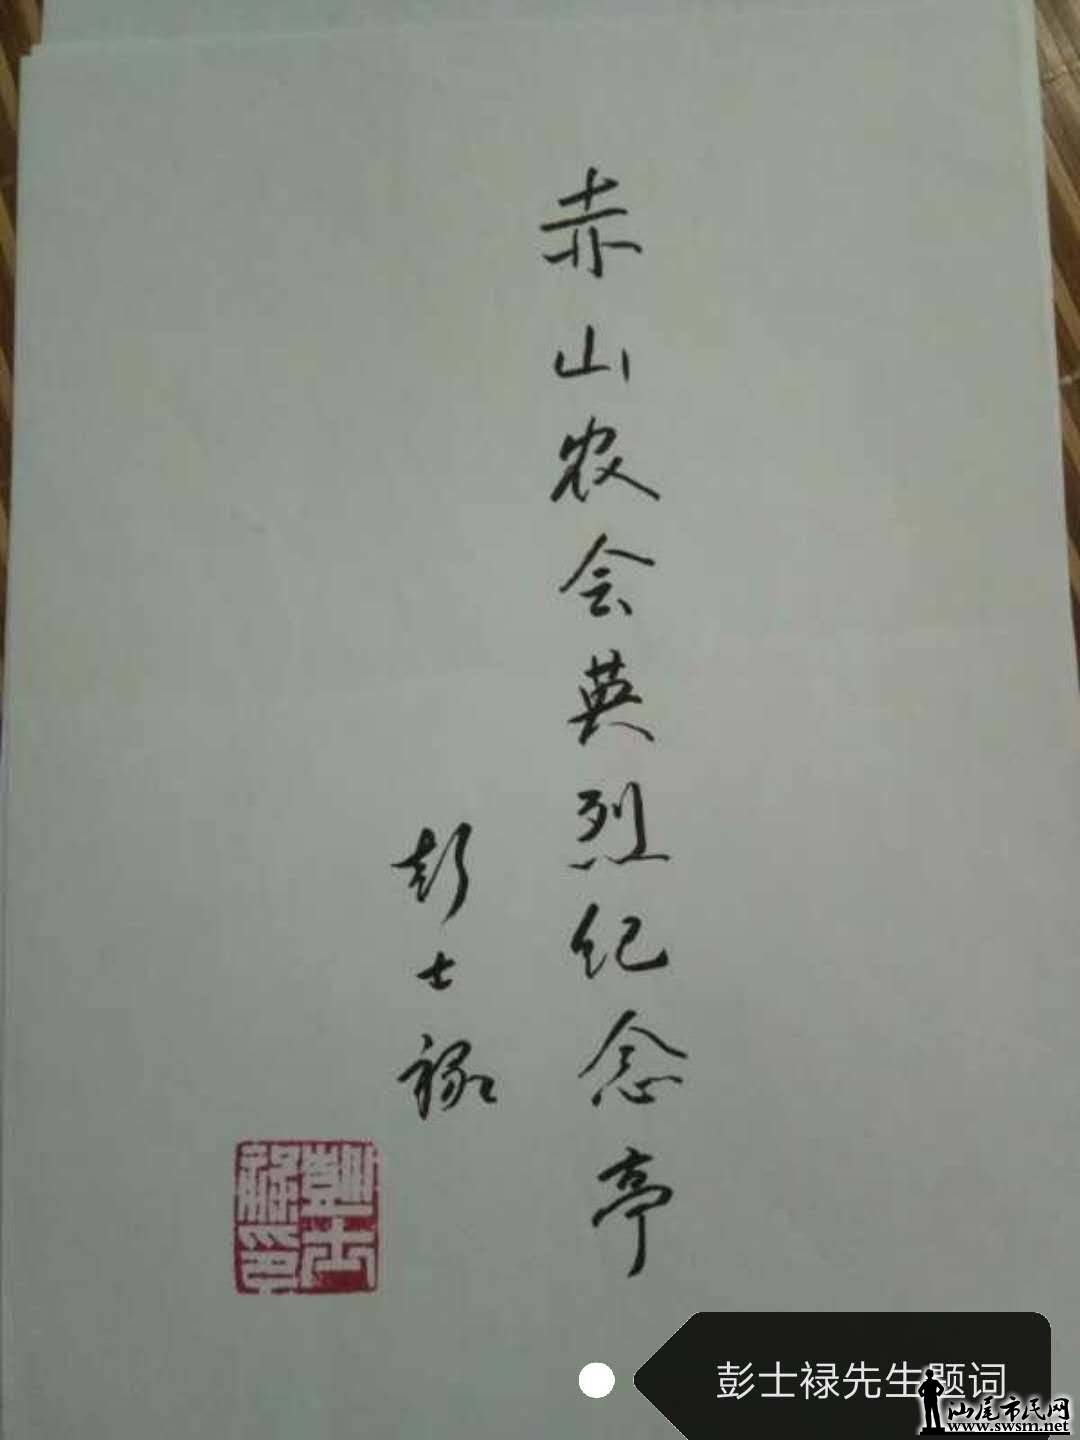 赤山农会英烈纪念亭
彭士禄
彭士禄印
彭士禄先生题词
汕尾市民网
www.swsm.net